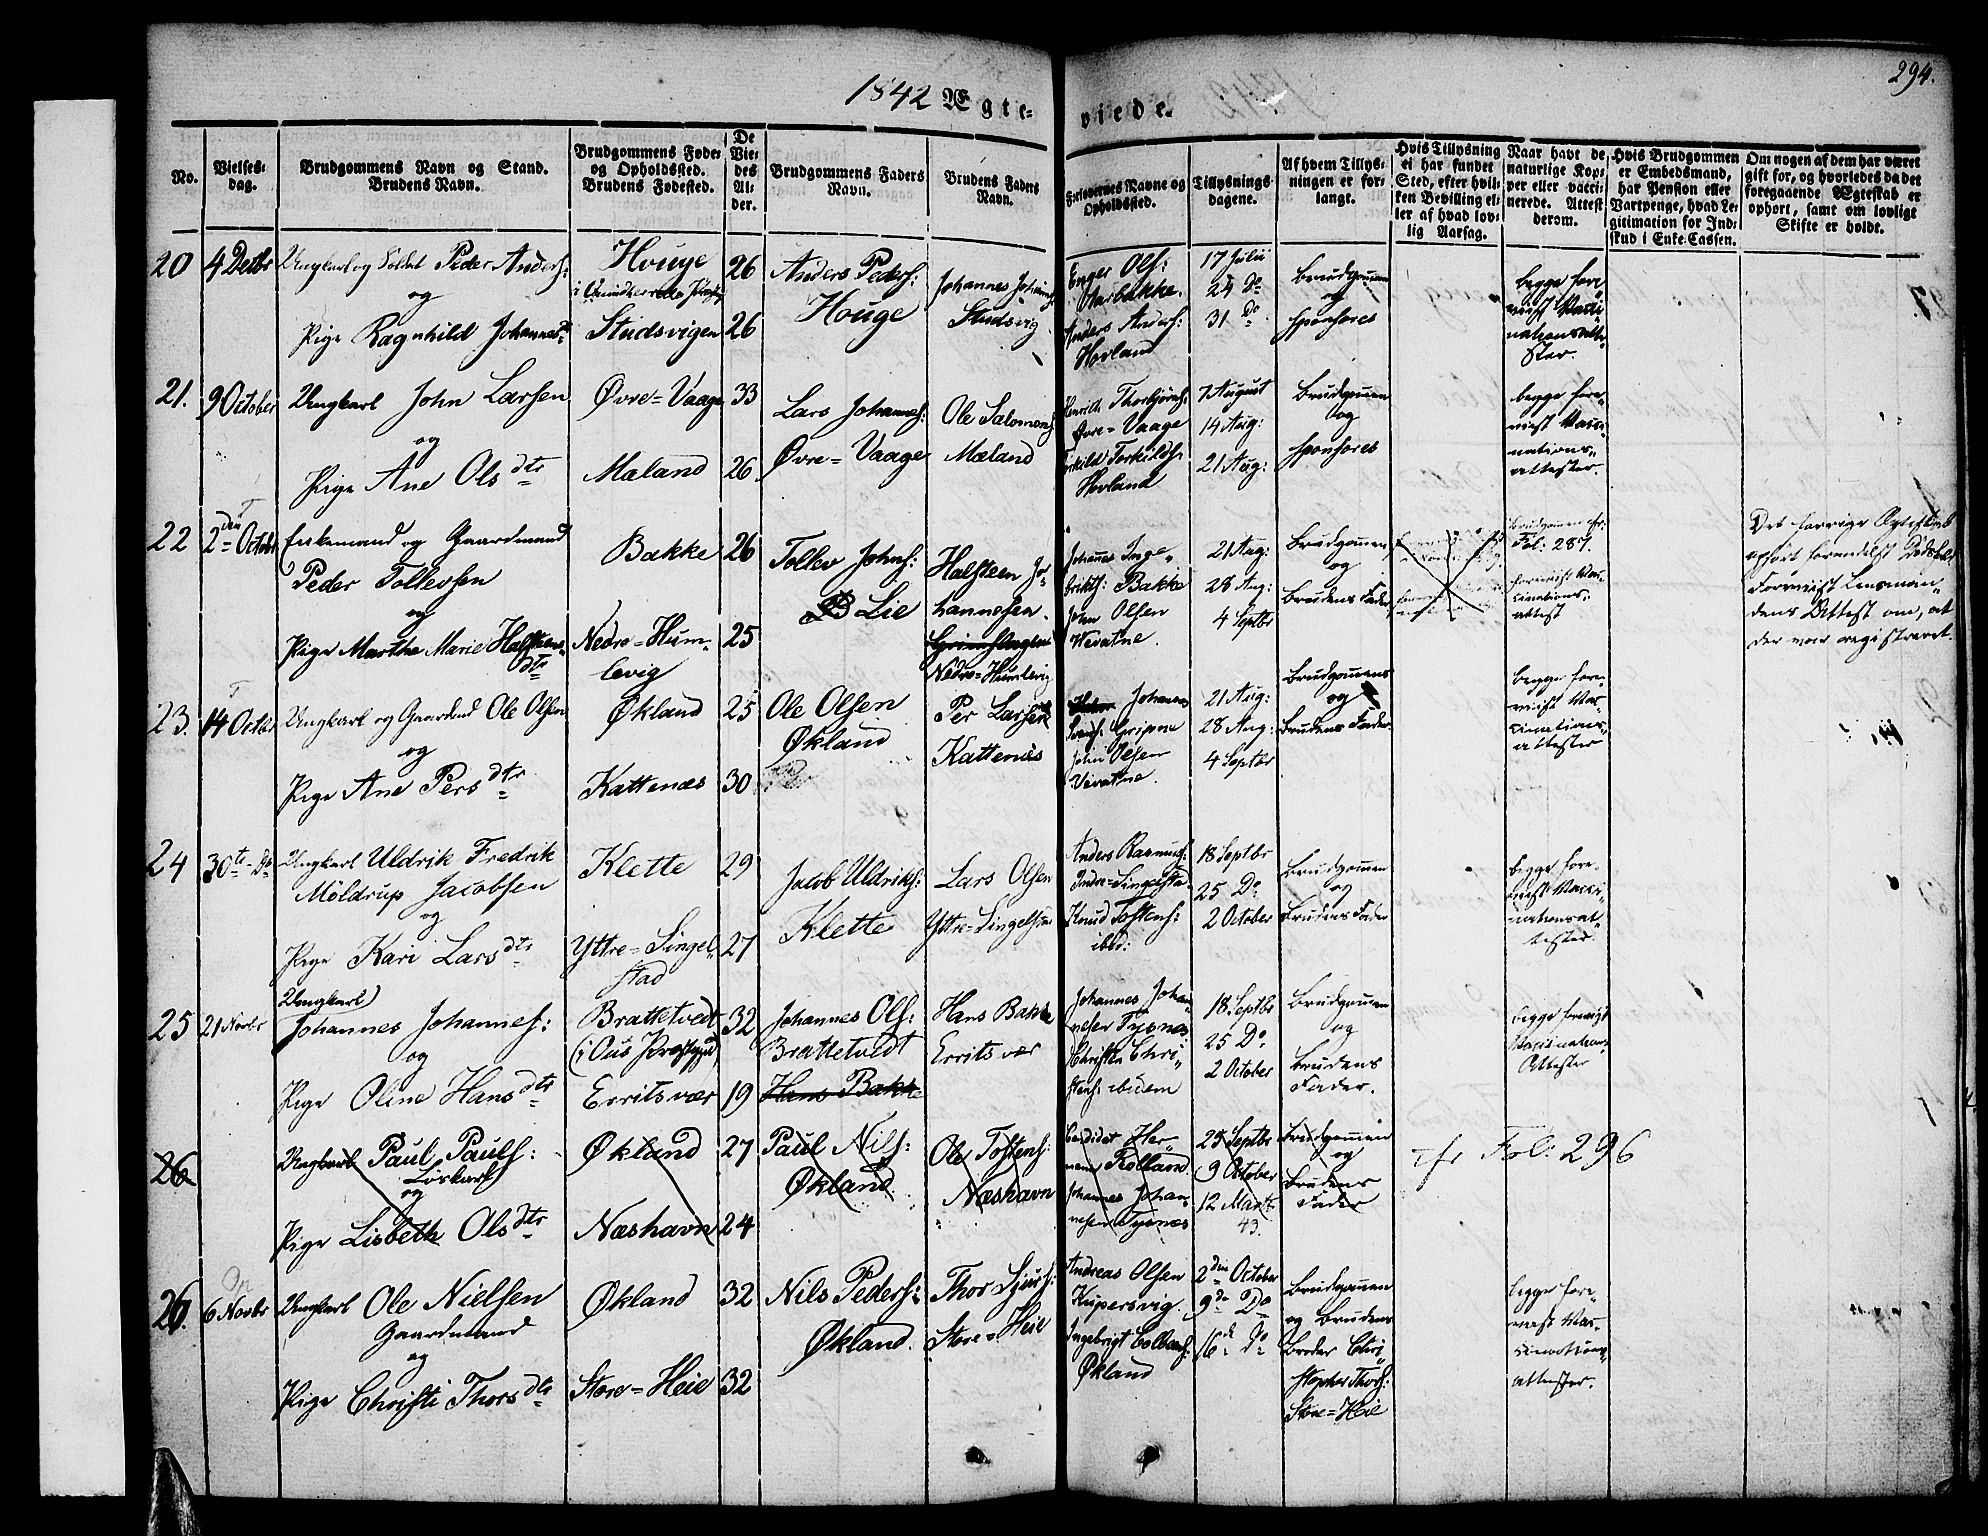 294.
1842 Ægte-
viede.
No.
Vielses-
dag.
Brudgommens Navn og Stand.
Brudens Navn.
Brudgommens Føde-
og Opholdssted.
Brudens Fødested.
De
Vie-
des
Al-
der.
Brudgommens Faders
Navn.
Brudens Faders
Navn.
Forlovernes Navne og
Opholdssted.
Tillysnings-
dagene.
Af hvem Tillys-
ningen er for-
langt.
Hvis Tillysning
ei har fundet
Sted, efter hvil-
ken Bevilling el-
ler af hvad lov-
lig Aarsag.
Naar havt de
naturlige Kop-
per eller vacci-
nerede. Attest
derom.
Hvis Brudgommen
er Embedsmand,
har Pension eller
Vartpenge, hvad Le-
gitimation for Ind-
skud i Enke-Cassen.
Om nogen af dem har været
gift før, og hvorledes da det
foregaaende Ægteskab er
ophørt, samt om lovligt
Skifte er holdt.
20
4 Decbr
Ungkarl og Soldat Peder Anders:
og
Pige Ragnhild Johannesd
Houge
Studsvigen
26
26
Anders Peders:
Houge
Johannes
Studsvig
Enger Ols:
Aarbakke.
Anders Anders:
Hovland
17 Julii
24 Do
31 Do
Brudgommen
og
Sponsores
begge fore-
viist Vacci-
nationsatte-
ster.
21.
9 October
Ungkarl John Larsen
og
Pige Ane Olsdtr
Øvre=Vaage
Maland
33
26
Lars Johannes:
Øvre=Vaage
Ole Salomons:
Mæland
Henrik Thorbjørns:
Øvre=Vaage
Torkild Torkilds:
Hovland
7 August
14 Aug:
21 Aug:
Brudgommen
og
Sponsores
begge fore-
viist Vacci-
nations-
attester.
22
2den October
Enkemand og Gaardmand
Peder Tollevsen
og
Pige Marthe Marie Halsteens-
dtr
Bakke
Nedre=Hum-
levig
26
25
Tollev Johns:
Lie
Halsteen Jo-
hannesen.
Nedre=Humlevig
Johannes Inge-
brikts: Bakke
John Olsen
Wevatne.
21 Aug:
28 Aug:
4 Septbr
Brudgommen
og
Brudens Fader
Brudgommen cfr.
Fol: 287.
foreviist Vac-
cinations-
attest
Det forrige Ægteskab
ophørt formedelst Dødsfald
Foreviist Lensman-
dens Attest om, at
der var registreret.
23.
14 Octbr
Ungkarl og Gaardmd Ole Olsen
og
Pige Ane Persdtr
Økland
Kattenæs
25
30
Ole Olsen
Økland
Per Larsen
Kattenæs
Johannes
Gripne
John Olsen
Vevatne.
21 Aug:
28 Aug:
4 Septbr
Brudgommens
og
Brudens Fader.
begge fore-
viist Vac-
cinations-
attester
24
30te Do
Ungkarl Uldrik Fredrik
Möldrup Jacobsen
og
Pige Kari Larsdtr
Klette
Yttre=Singel-
stad
29
27
Jacob Uldriks:
Klette
Lars Olsen
Yttre=Singelstad
Anders Rasmus:
Indre=Singelstad
Knud Tostens:
ibid:
18 Septbr
25 Do
2 October
Brudgommen
og
Brudens Fader
begge fore-
viist Vacci-
nationsat-
tester.
25
21 Novbr
Ungkarl
Johannes Johannes:
og
Pige Oline Hansdtr
Brattetvedt
(i Ous Præstegjd)
Erritsvær
32
19
Johannes Ols:
Brattetvedt
Hans Bakke
Hans Bakke
Erritsvær
Johannes Johan-
nesen Tysnæs
Christen Chri-
stens: ibidem
18 Septbr
25 Do
2 October
Brudgommen
og
Brudens
Fader.
begge foreviist
Vaccinations-
Attester
26
Ungkarl Paul Pauls:
Löskarl
og
Pige Lisbeth Olsdtr
Økland
Næshavn
27
24
Paul Nils:
Økland
Ole Tostens:
Næshavn
Candidat Her-
Rolland.
Johannes Johan-
nesen Tysnæs
25 Septbr
9 October
12 Marts
43.
Brudgommen
og
Brudens
Fader
cfr Fol: 296
26.
6 Novbr
Ungkarl Ole Nielsen
Gaardmand
og
Pige Christi Thorsdtr
Økland
Store=Heie
32
32
Nils Peders:
Økland.
Thor Sjurs:
Store=Heie
Andreas Olsen
Kupersvig.
Ingebrigt Colbens:
Økland
2den October
9de Do
16de Do
Brudgommen
og Brudens
Broder Chri-
stopher Thors:
Store=Heie
begge fore-
viist Vac-
cinations-
attester.